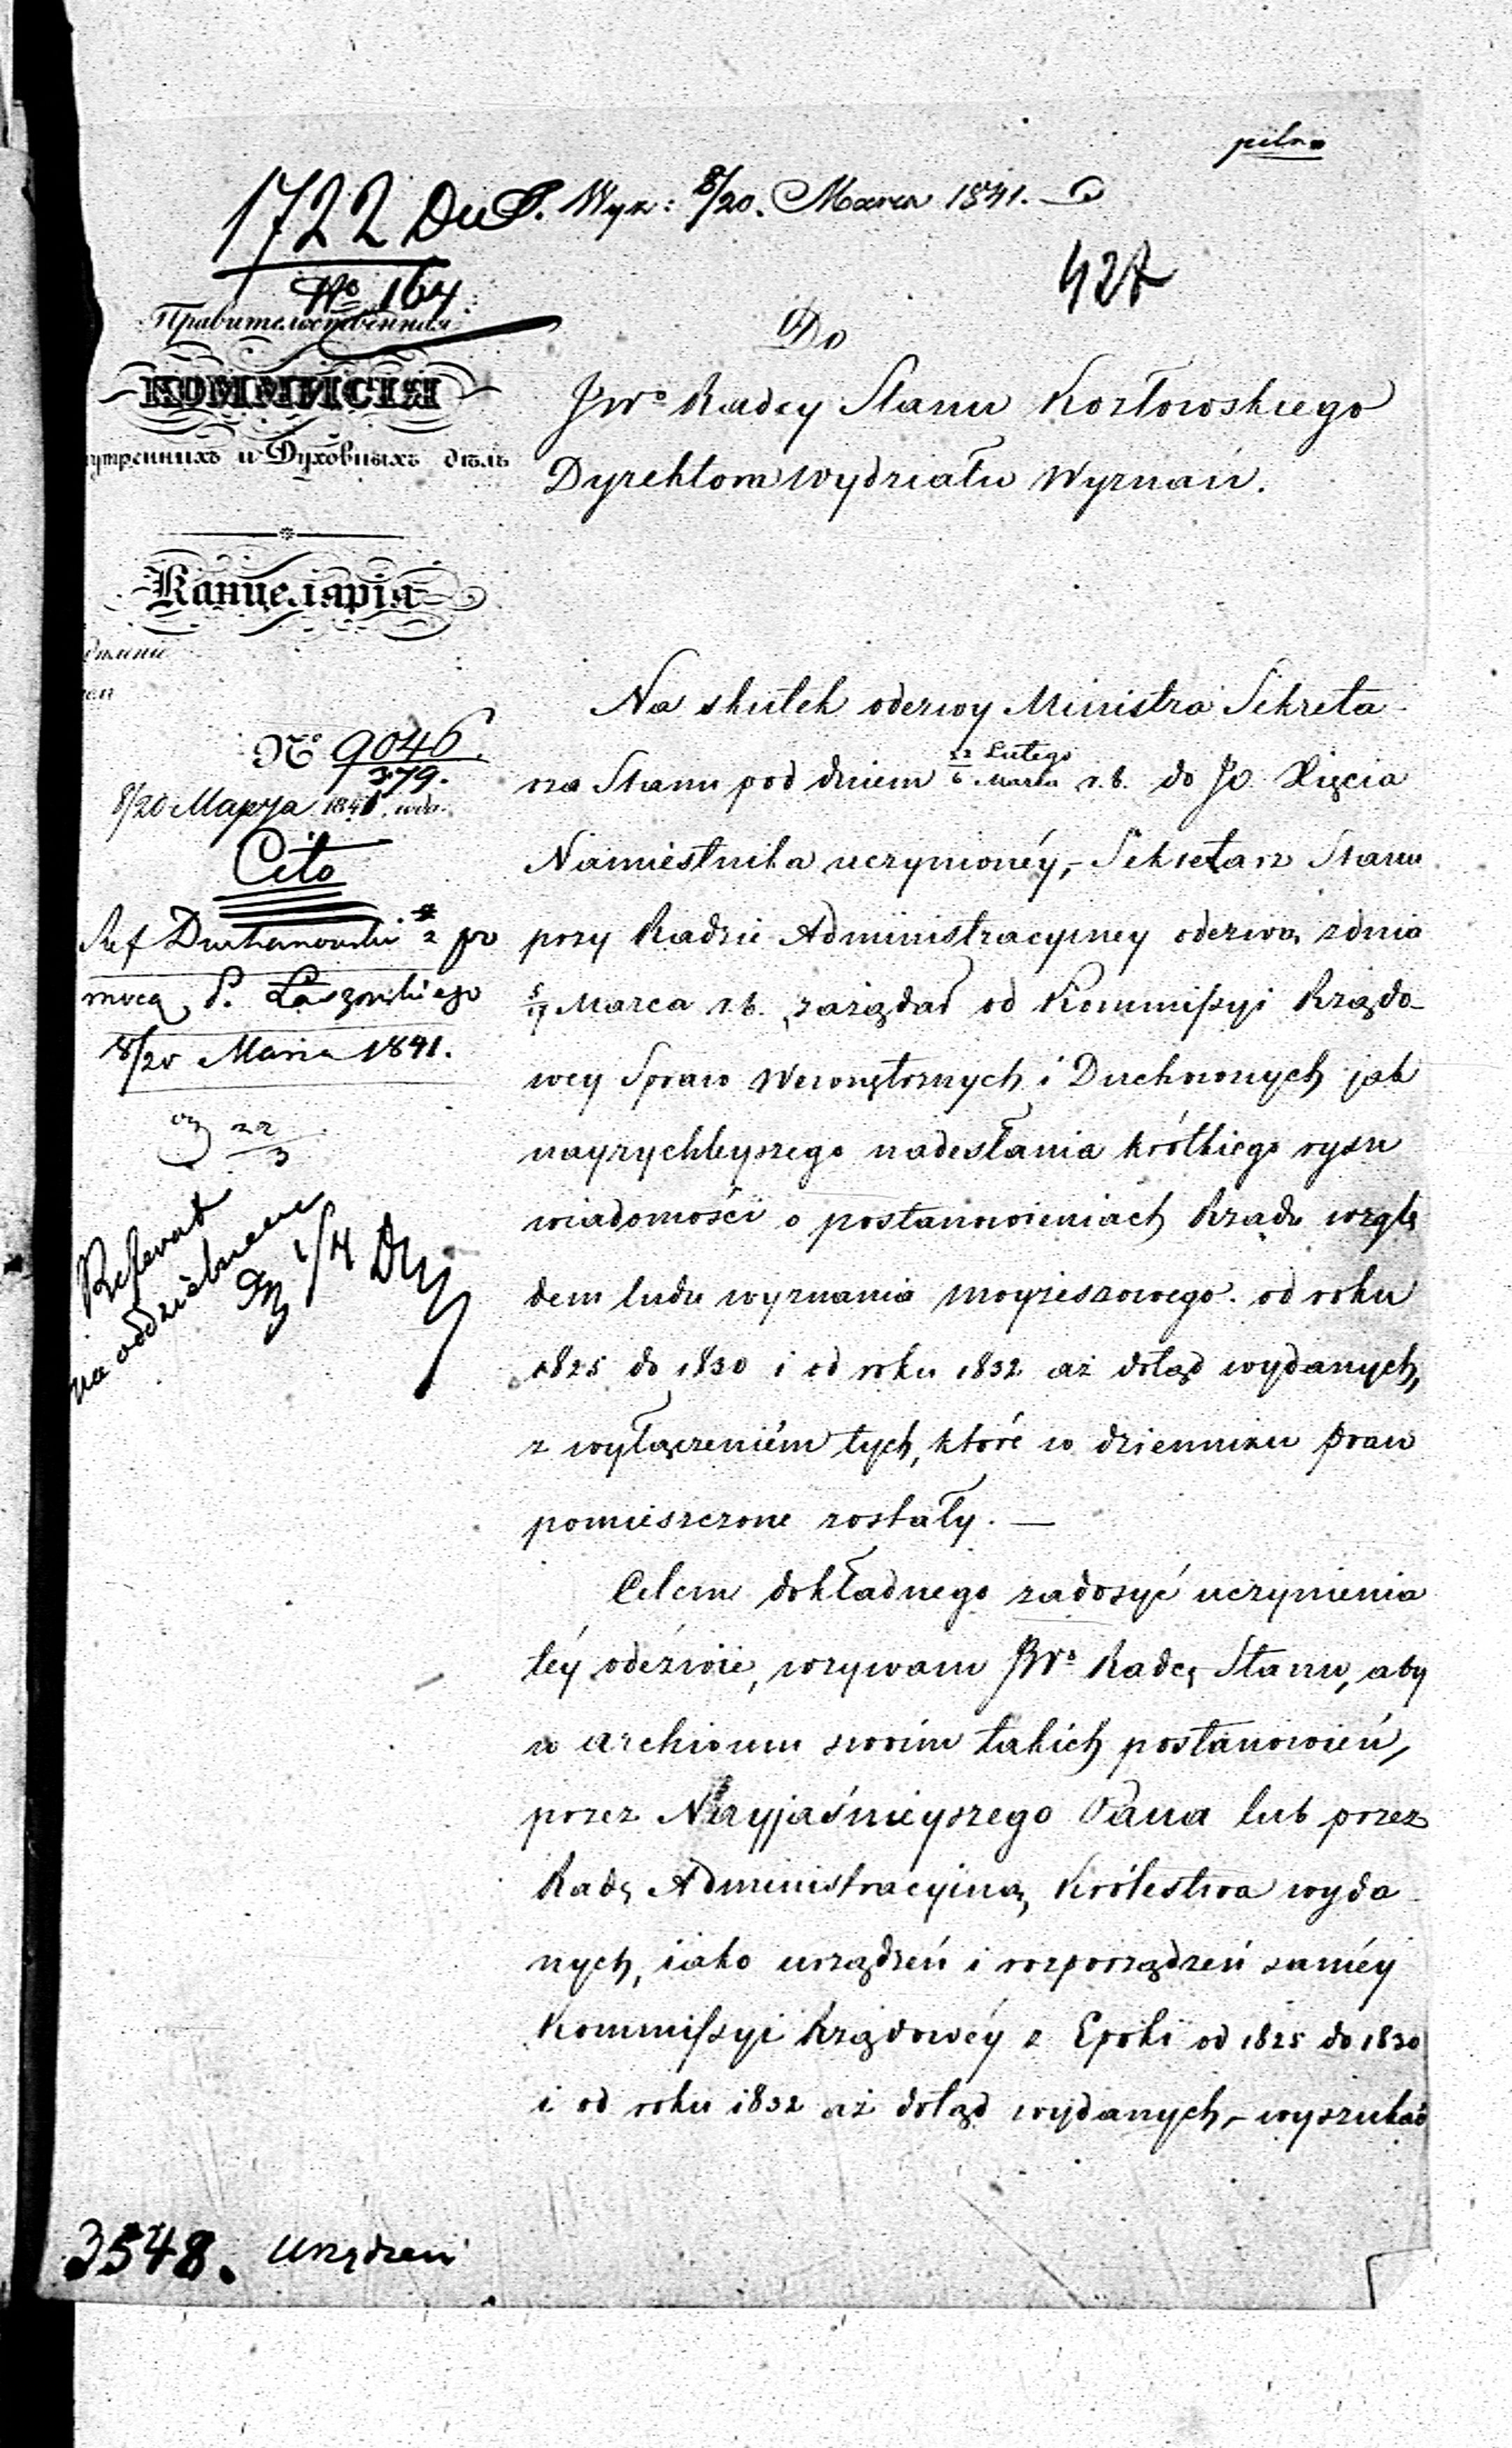 pilno
1722 DuS. Wyz: 8/20. Marca 1841.
No 164
427
Правительственная
КОММИСІЯ
утреннихъ и Духовныхъ дѣлъ
Канцелярія
No 9046
379.
8/20 Марта 1841 года.
Cito
Ref Duchanowski z po
mocą P. Łaszowskiego
8/20 Marca 1841.
22/3
Referat
na oddzielnem
1/4
Do
JWo Radcy Stanu Kozłowskiego
Dyrektora Wydziału Wyznań.
Na skutek odezwy Ministra Sekreta-
rza Stanu pod dniem 22 Lutego / 6 Marca r.b. do JO Xięcia
Namiestnika uczynionéy, – Sekretarz Stanu
przy Radzie Administracyiney odezwą z dnia
5/17 Marca r.b. zażądał od Kommissyi Rządo-
wey Spraw Wewnętrznych i Duchownych jak
nayrychleyszego nadesłania krótkiego rysu
wiadomości o postanowieniach Rządu wzglę
dem ludu wyznania moyżeszowego. od roku
1825 do 1830 i od roku 1832 aż dotąd wydanych,
z wyłączeniém tych, które w dzienniku praw
pomieszczone zostały. —
Celem dokładnego zadosyć uczynienia
téy odezwie, wzywam JWo Radcę Stanu, aby
w archiwum swoim takich postanowień,
przez Nayjaśnieyszego Pana lub przez
Radę Administracyiną Królestwa wyda-
nych, iako urządzeń i rozporządzeń saméy
Kommissyi Rządowéy z Epoki od 1825 do 1830
i od roku 1832 aż dotąd wydanych, – wyszukać
3548. Urządzeń